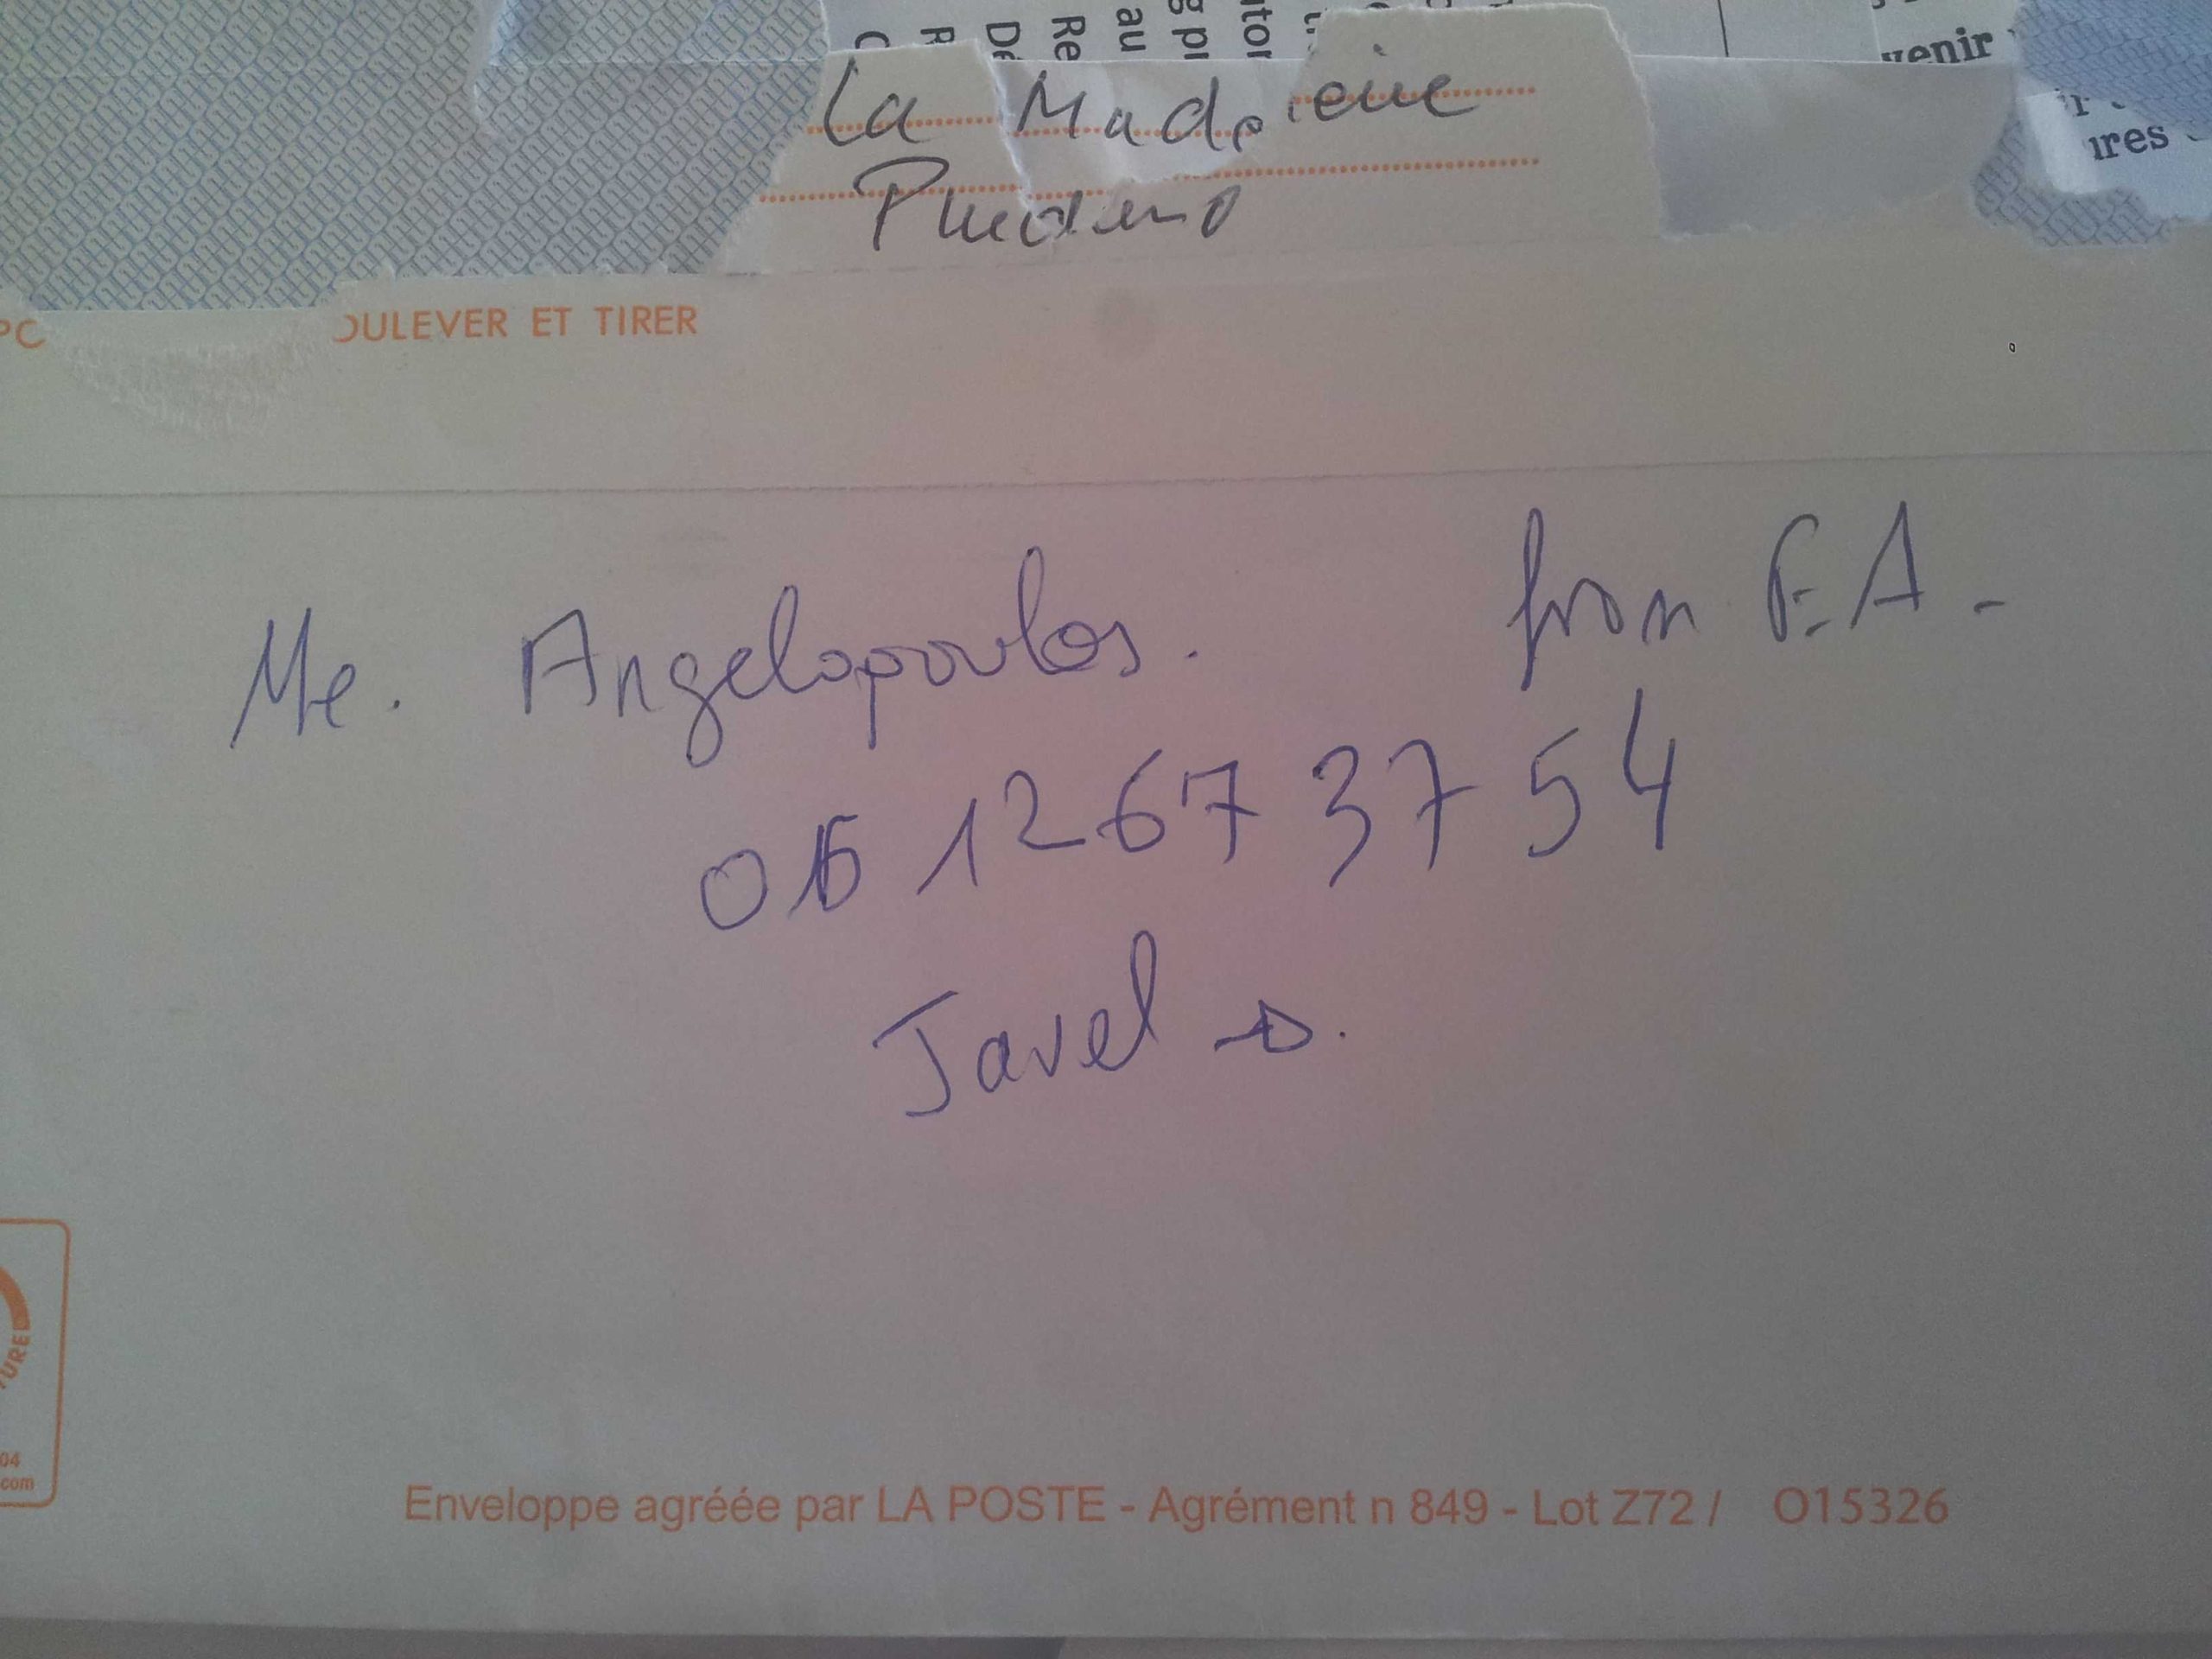 au
Re
venir
ures
La Madeleine
OULEVER ET TIRER
Me. Angelopoulos. from F.A-
06 12 67 37 54
Javel
URE
04
com
Enveloppe agréée par LA POSTE - Agrément n 849 - Lot Z72 / O15326